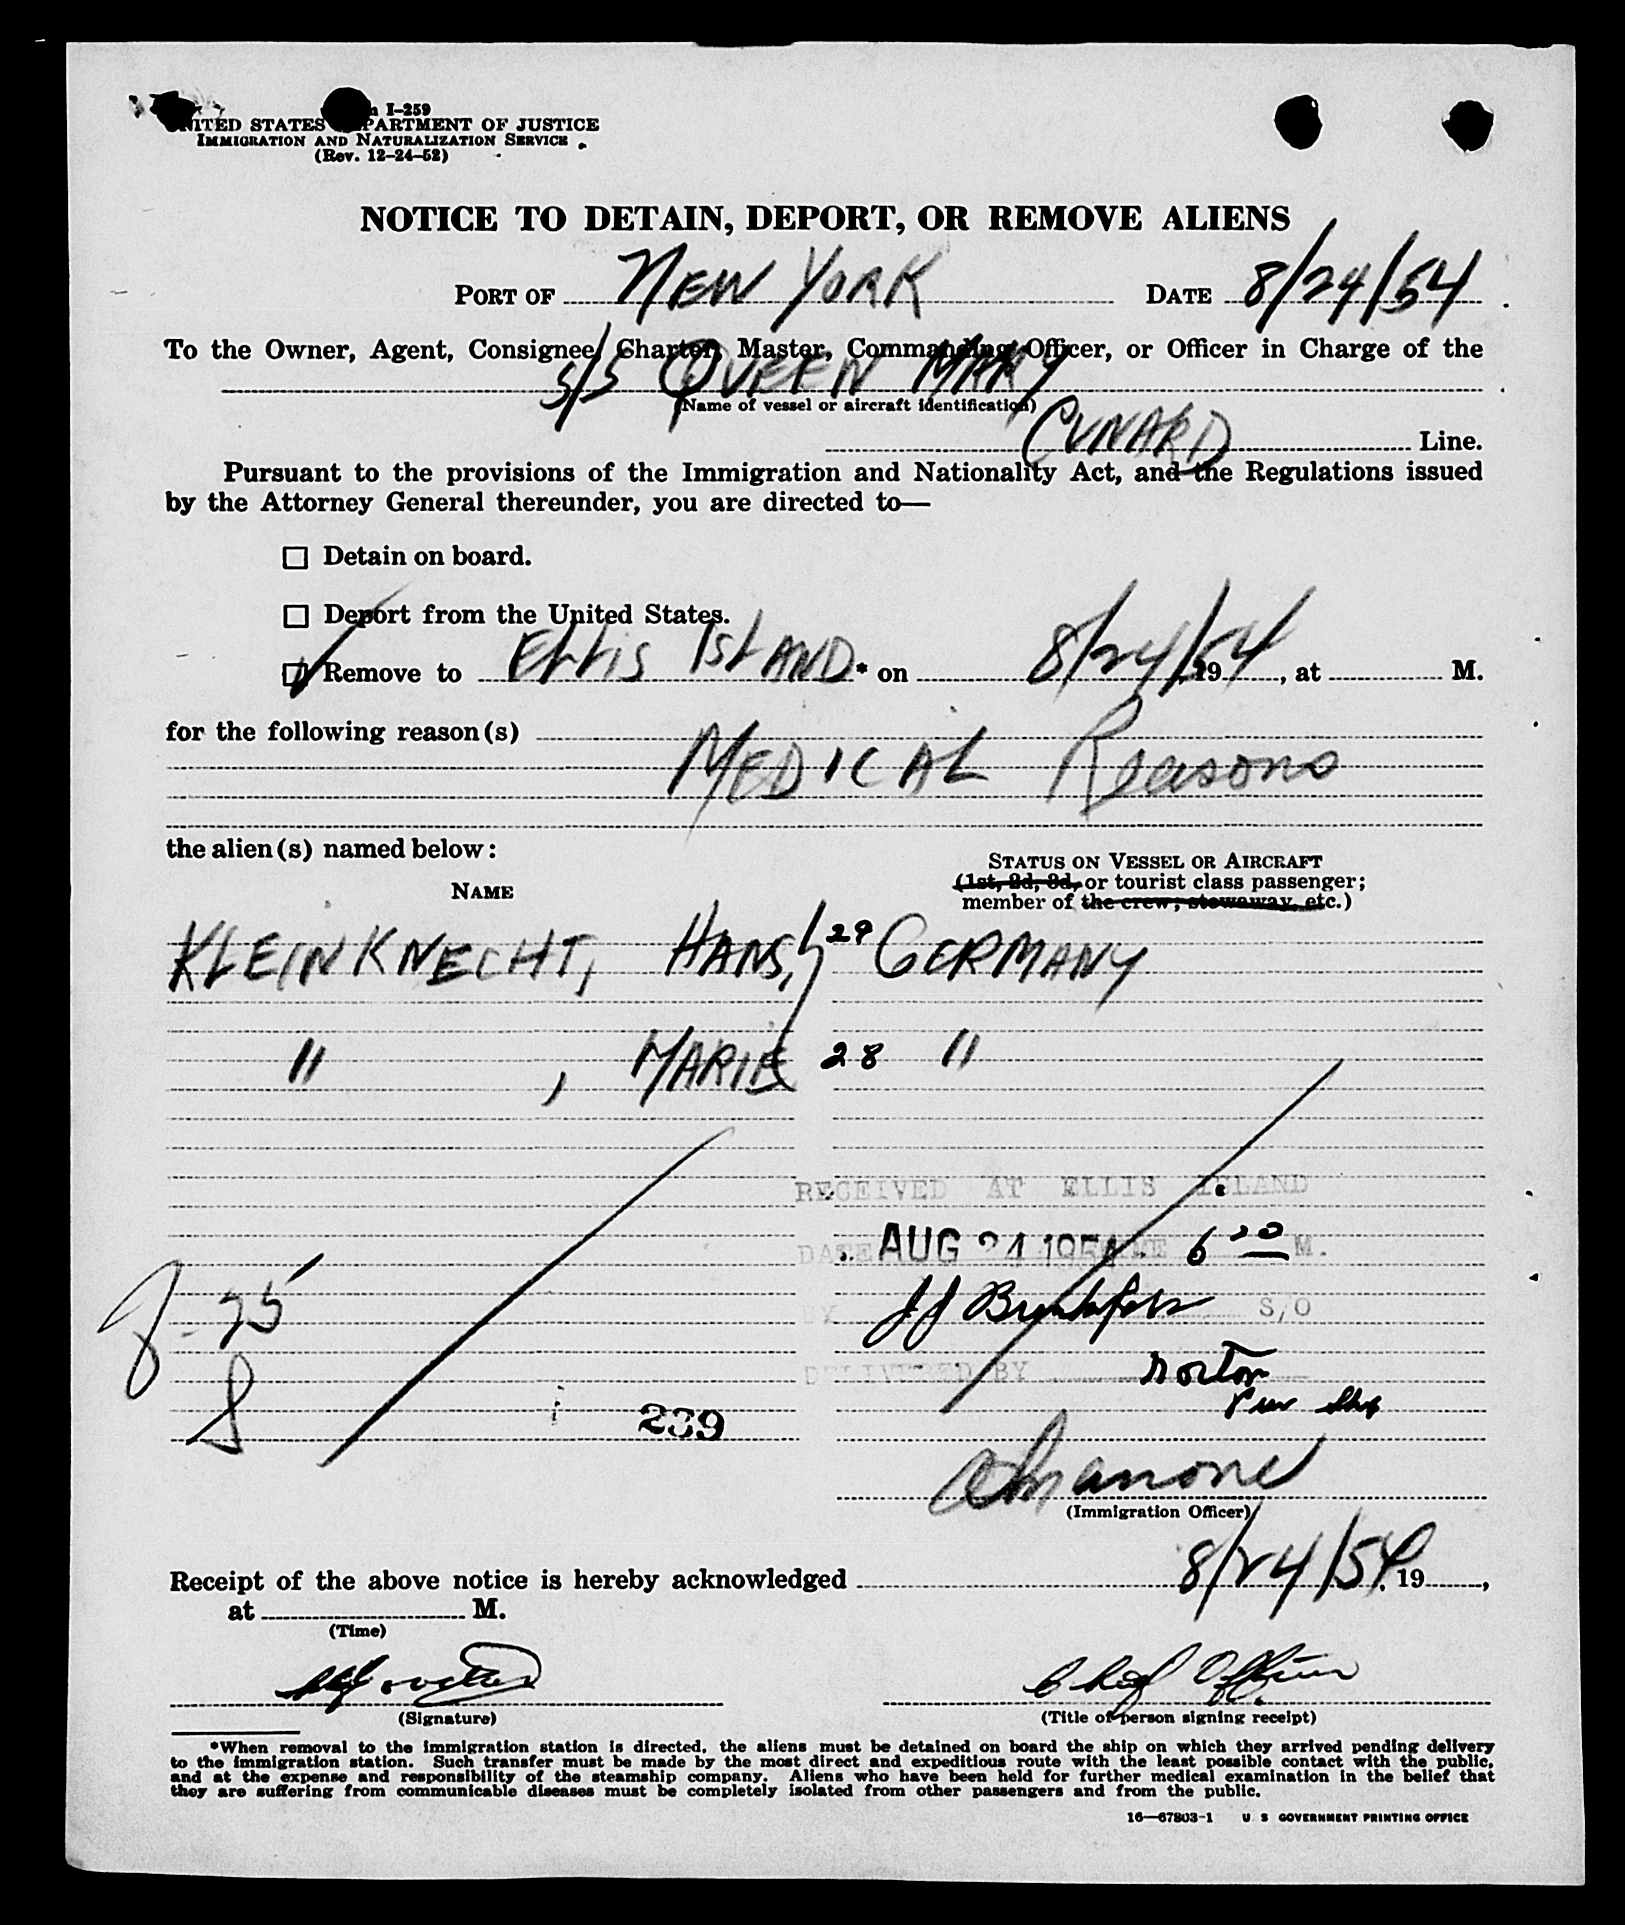 I-259
UNITED STATES DEPARTMENT OF JUSTICE
IMMIGRATION AND NATURALIZATION SERVICE
(Rev. 12-24-52)
NOTICE TO DETAIN, DEPORT, OR REMOVE ALIENS
PORT OF NEW YORK DATE 8/24/54
To the Owner, Agent, Consignee, Charter, Master, Commanding Officer, or Officer in Charge of the
S/S QUEEN MARY
(Name of vessel or aircraft identification)
CUNARD Line.
Pursuant to the provisions of the Immigration and Nationality Act, and the Regulations issued
by the Attorney General thereunder, you are directed to—
☐ Detain on board.
☐ Deport from the United States.
☑ Remove to ELLIS ISLAND* on 8/24/54 19, at M.
for the following reason(s)
MEDICAL Reasons
the alien(s) named below:
STATUS ON VESSEL OR AIRCRAFT
(1st, 2d, 3d, or tourist class passenger;
NAME
member of the crew; stowaway, etc.)
KLEINKNECHT, HANS, 29 GERMANY
" , MARIE 28 "
RECEIVED AT ELLIS ISLAND
DATE AUG 24 1954 6 20 M.
BY S/O
DELIVERED BY Norton
239
(Immigration Officer)
8/24/54
Receipt of the above notice is hereby acknowledged 19,
at M.
(Time)
Chief Officer
(Signature) (Title of person signing receipt)
*When removal to the immigration station is directed, the aliens must be detained on board the ship on which they arrived pending delivery
to the immigration station. Such transfer must be made by the most direct and expeditious route with the least possible contact with the public,
and at the expense and responsibility of the steamship company. Aliens who have been held for further medical examination in the belief that
they are suffering from communicable diseases must be completely isolated from other passengers and from the public.
16—67803-1 U S GOVERNMENT PRINTING OFFICE